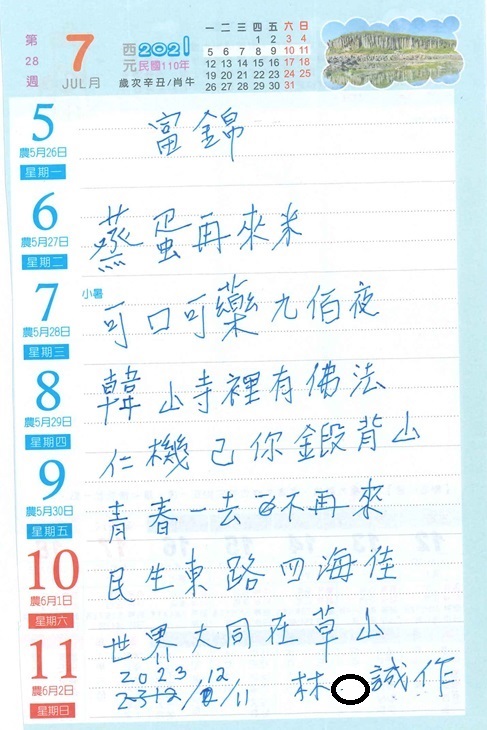 第28週
7
JUL月
西元2021
民國110年
歲次辛丑/肖牛
一 二 三 四 五 六 日
1 2 3 4
5 6 7 8 9 10 11
12 13 14 15 16 17 18
19 20 21 22 23 24 25
26 27 28 29 30 31
5
農5月26日
星期一
富錦
6
農5月27日
星期二
蒸蛋再來米
7
小暑
農5月28日
星期三
可口可藥九佰夜
8
農5月29日
星期四
韓山寺裡有佛法
仁機己你鍛背山
9
農5月30日
星期五
青春一去不再來
10
農6月1日
星期六
民生東路四海佳
11
農6月2日
星期日
世界大同在草山
2023 12
/11
林 誠作